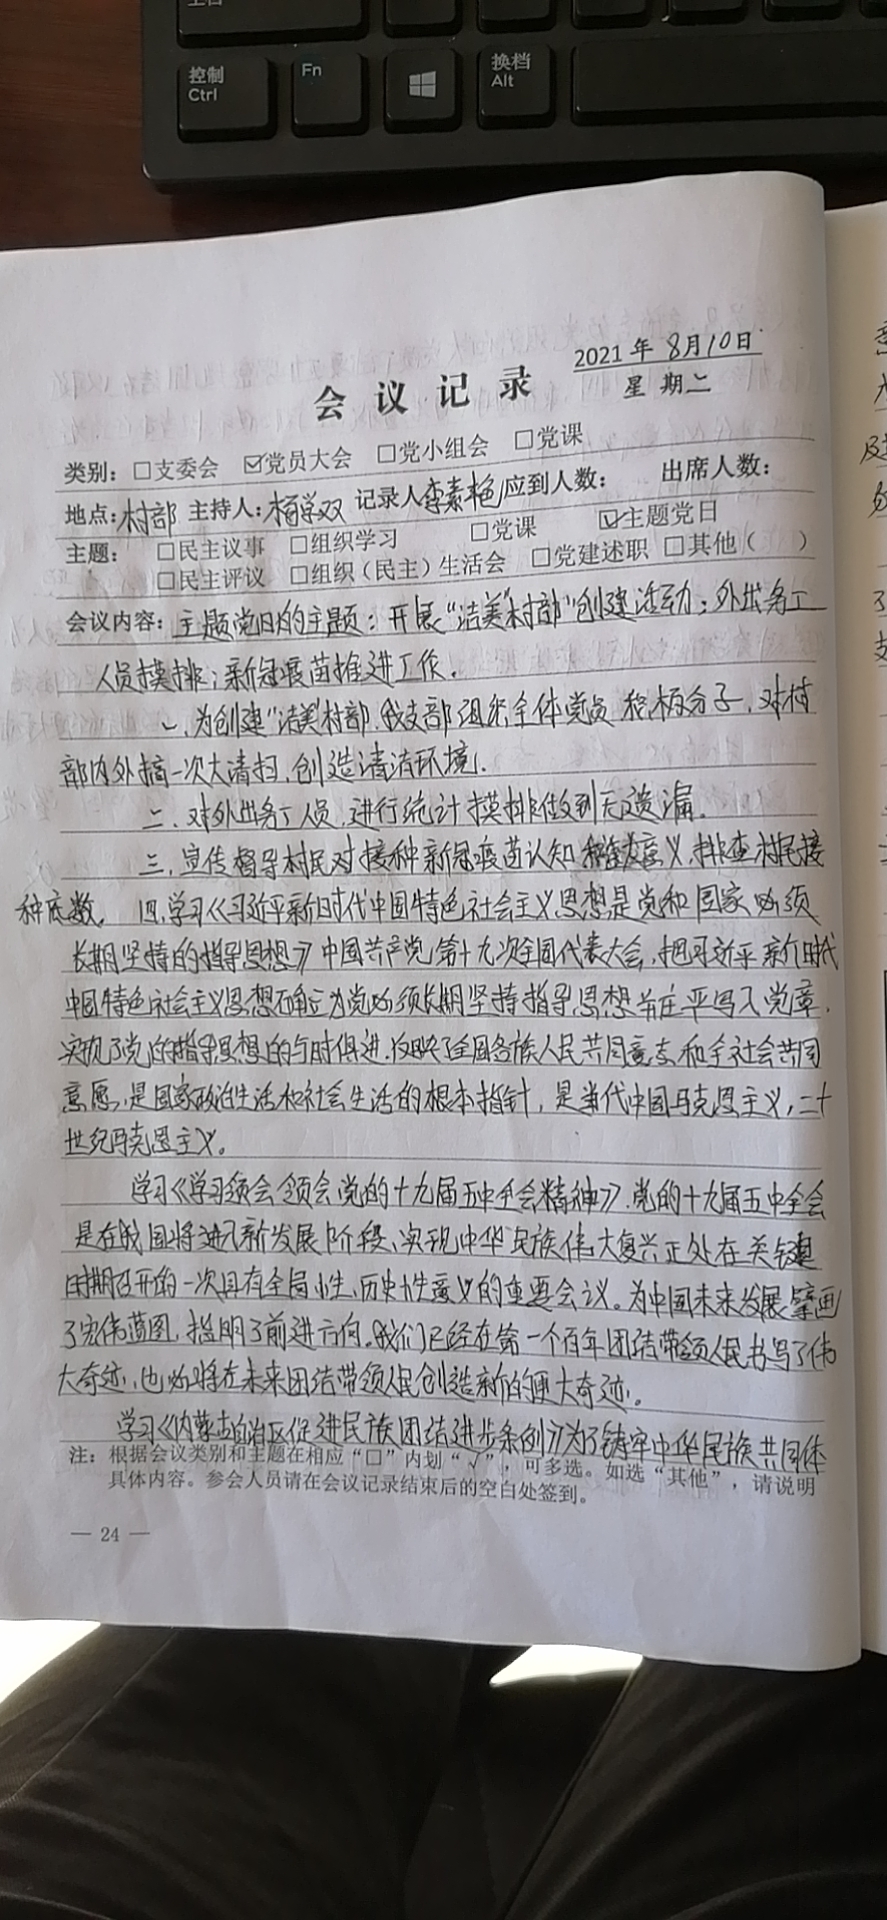 控制
Ctrl
Fn
换档
Alt
2021年8月10日
会议记录
星期二
类别：□支委会 ☑党员大会 □党小组会 □党课
地点：村部 主持人：杨学双 记录人李素艳 应到人数： 出席人数：
主题： □民主议事 □组织学习 □党课 ☑主题党日
□民主评议 □组织（民主）生活会 □党建述职 □其他（ ）
会议内容：主题党日的主题：开展“洁美”村部“创建活动；外出务工
人员摸排；新冠疫苗推进工作。
一、为创建“洁美”村部，我支部组织全体党员 积极分子，对村
部内外搞一次大清扫，创造清洁环境。
二、对外出务工人员，进行统计摸排做到无遗漏。
三、宣传督导村民对接种新冠疫苗认知 意义，排查村民接
种底数。 四、学习《习近平新时代中国特色社会主义思想是党和国家必须
长期坚持的指导思想》中国共产党第十九次全国代表大会，把习近平新时代
中国特色社会主义思想确立为党必须长期坚持指导思想并庄严写入党章，
实现了党的指导思想的与时俱进，反映了全国各族人民共同意志和全社会共同
意愿，是国家政治生活和社会生活的根本指针，是当代中国马克思主义，二十
世纪马克思主义。
学习《学习领会领会党的十九届五中全会精神》，党的十九届五中全会
是在我国将进入新发展阶段、实现中华民族伟大复兴正处在关键
时期召开的一次具有全局性、历史性意义的重要会议。为中国未来发展擘画
了宏伟蓝图，指明了前进方向。我们已经在第一个百年团结带领人民书写了伟
大奇迹，也必将在未来团结带领人民创造新的更大奇迹。
学习《内蒙古自治区促进民族团结进步条例》为了铸牢中华民族共同体
注：根据会议类别和主题在相应“□”内划“√”，可多选。如选“其他”，请说明
具体内容。参会人员请在会议记录结束后的空白处签到。
— 24 —